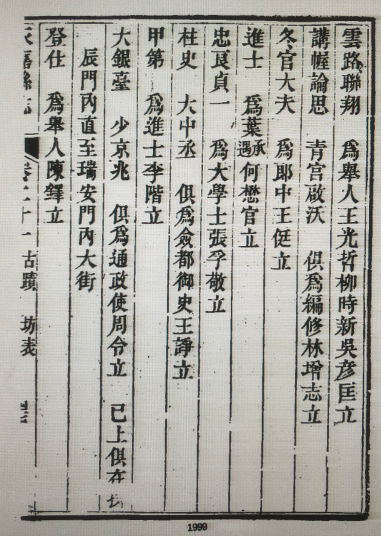 雲路聯翔　為舉人王光哲柳時新吳彥匡立
講幄論思　青宮啟沃　俱為編修林增志立
冬官大夫　為郎中王侹立
進士　為葉承遇何懋官立
忠良貞一　為大學士張孚敬立
柱史　大中丞　俱為僉都御史王諍立
甲第　為進士李階立
大銀臺　少京兆　俱為通政使周令立　已上俱在
辰門內直至瑞安門內大街
登仕　為舉人陳鐸立
卷二十一　古蹟　坊表
1999